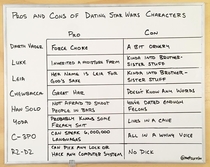 Pros and Cons of Dating Star Wars Characters
Pro Con
Darth Vader Force Choke A bit ornery
Luke Inherited a moisture farm Kinda into brother-sister stuff
Leia Her name is Leia for God's sake Kinda into brother-sister stuff
Chewbacca Great hair Doesn't know any words
Han Solo Not afraid to shoot people in bars Have dated enough felons
Yoda Probably knows some freaky shit Lives in a cave
C-3PO Can speak 6,000,000 languages All in a whiny voice
R2-D2 Can pick any lock or hack any computer system No dick